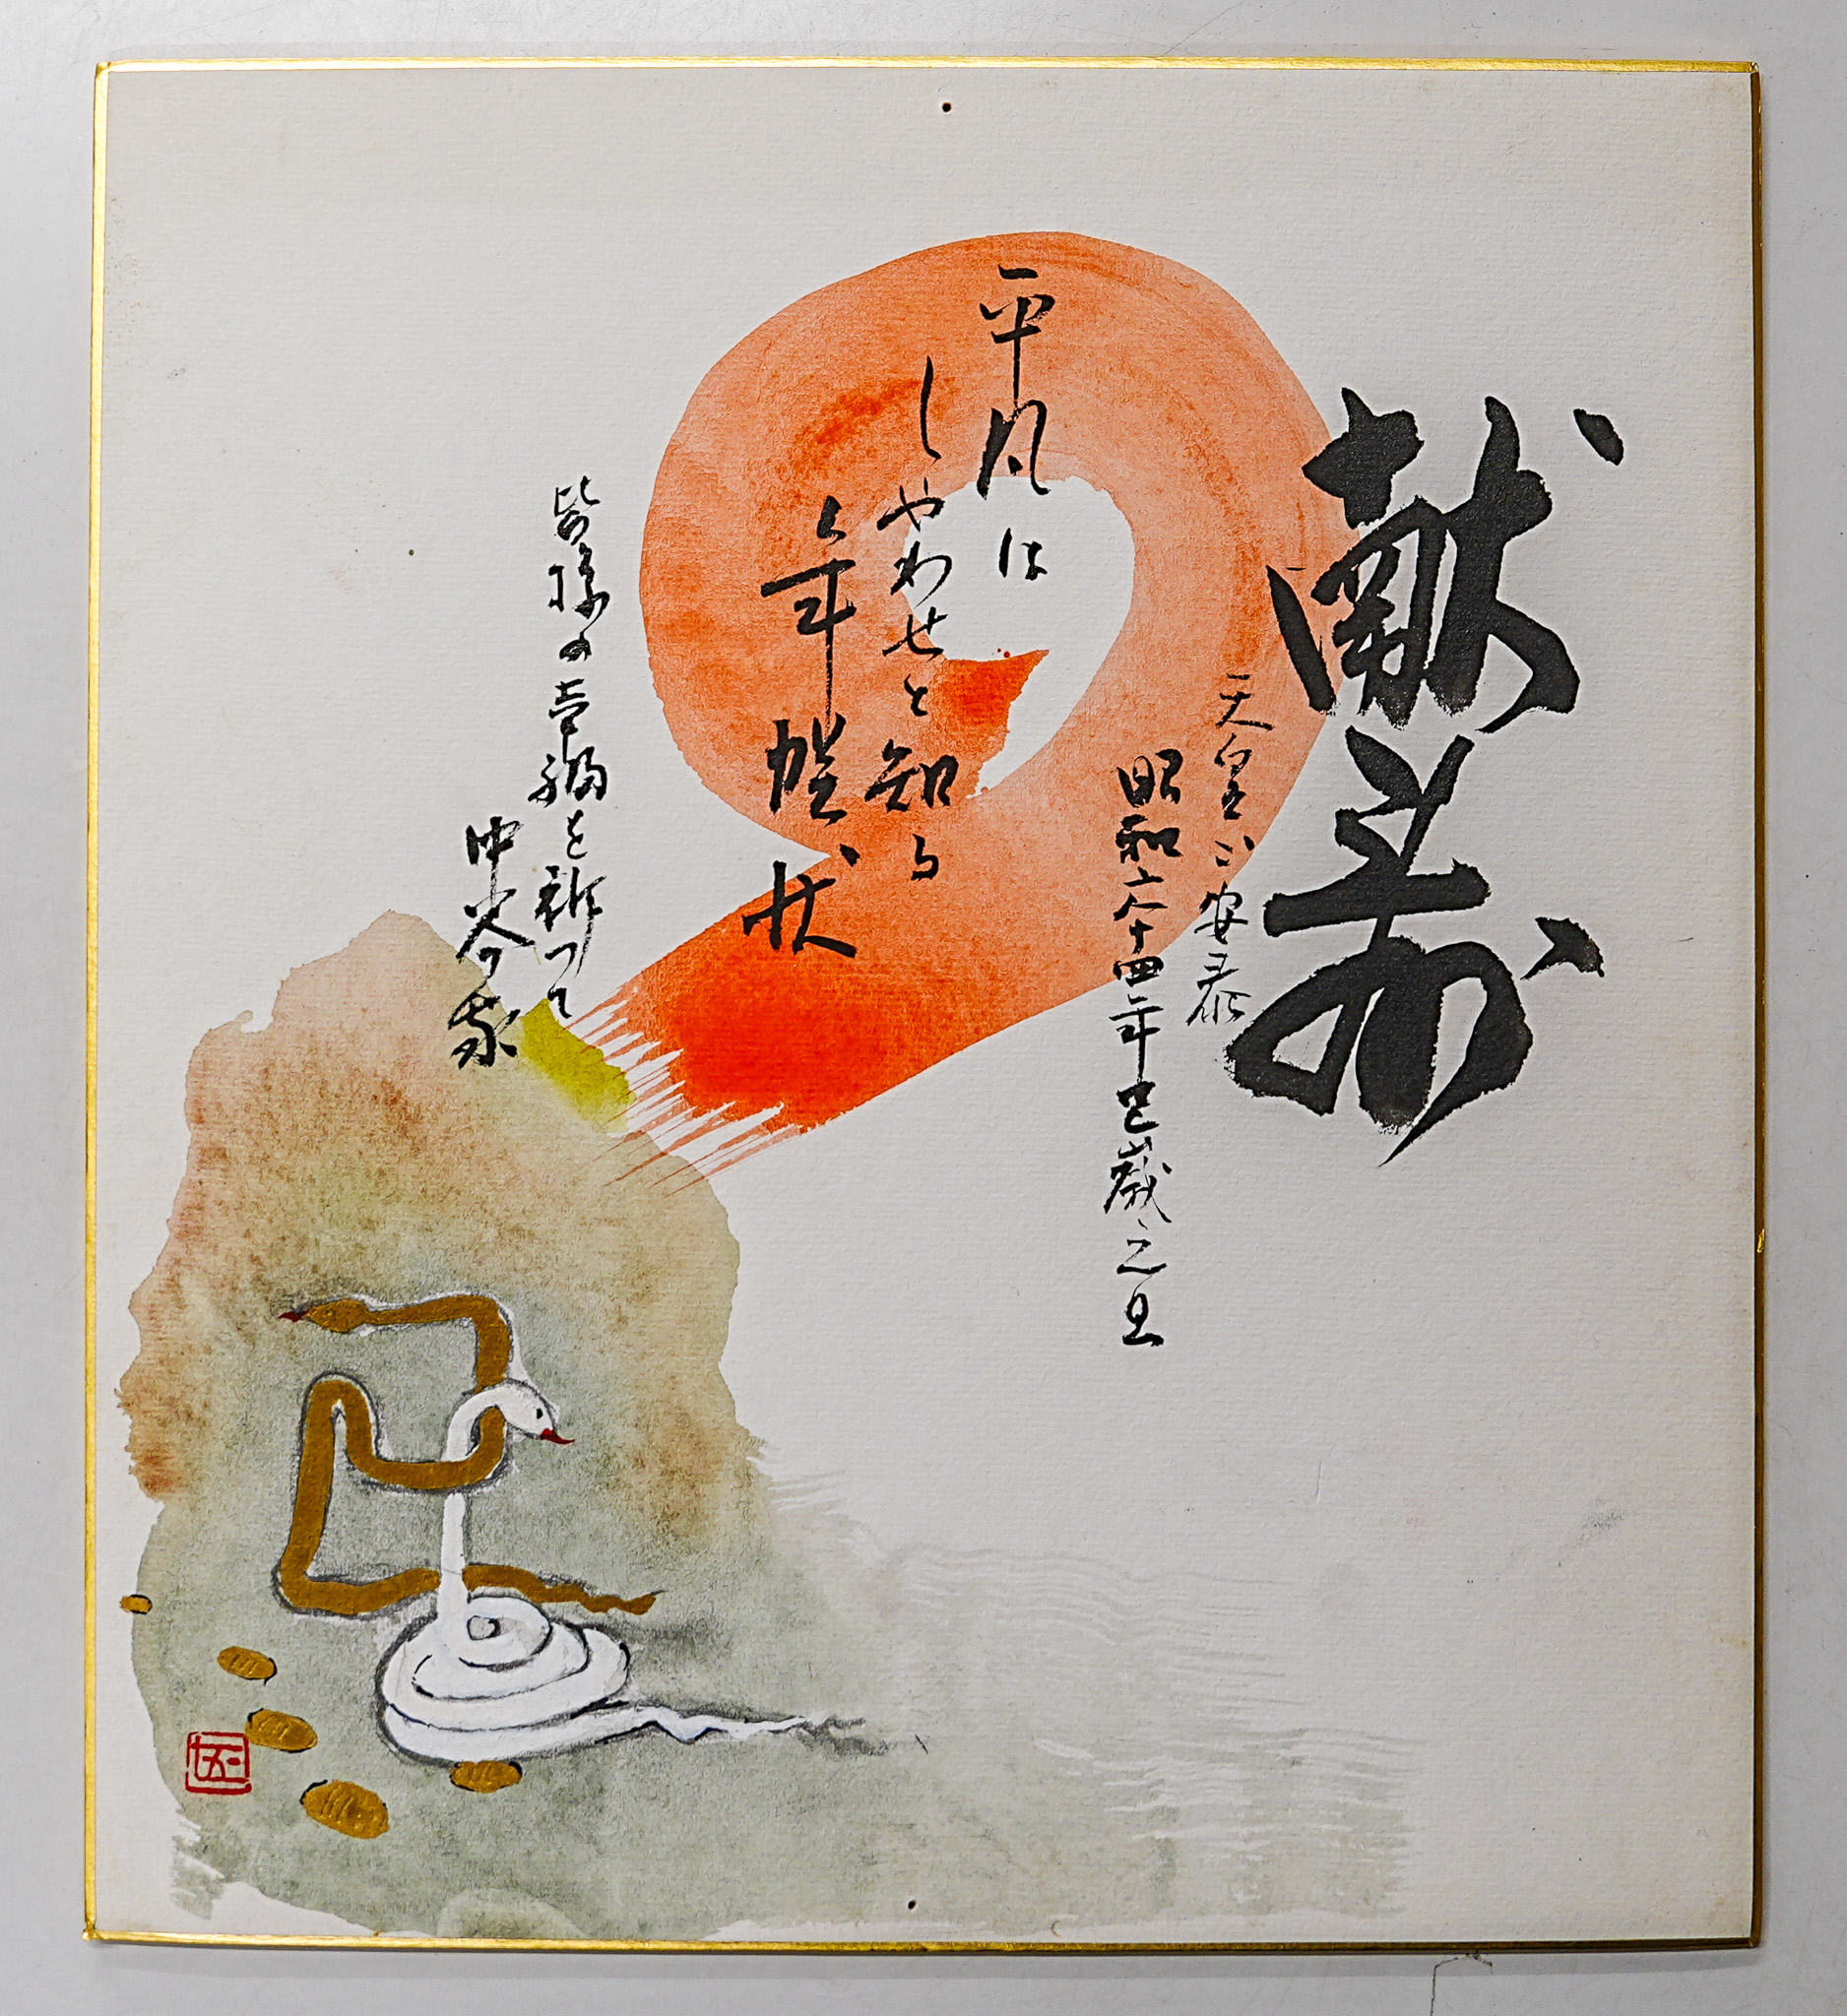 献寿
天皇の安泰
昭和六十四年巳歳之旦
平凡は
しやわせと知る
年賀状
皆様の壱福を祈つて
仲谷家